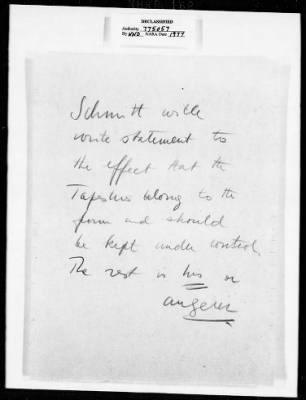 DECLASSIFIED
Authority 775057
By NND NARA Date 1977
Schmitt will
write statement to
the effect that the
Tapestries belong to the
firm and should
be kept under control.
The rest is his or
Angerer